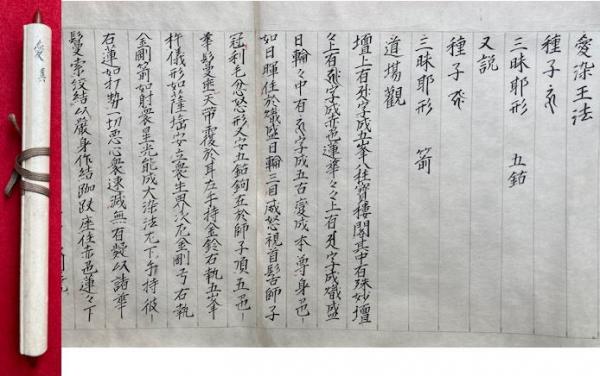 愛染王法
種子
三昧耶形 五鈷
又説
種子
三昧耶形 箭
道場觀
壇上有字成五峯八柱寶樓閣其中有殊妙壇
々上有字成赤色蓮華々々上有字成熾盛
日輪々中有字成五古變成本尊身色
如日暉住於熾盛日輪三目威怒視首髻師子
冠利毛忿怒形又安五鈷鉤在於師子頂五色
華鬘垂天帶覆於耳左手持金鈴右執五峯
杵儀形如薩埵安立衆生界次左金剛弓右執
金剛箭如射衆星光能成大染法左下手持彼
右蓮如打勢一切惡心衆速滅無有疑以諸華
鬘索絞結以嚴身作結跏趺座住赤色蓮々下